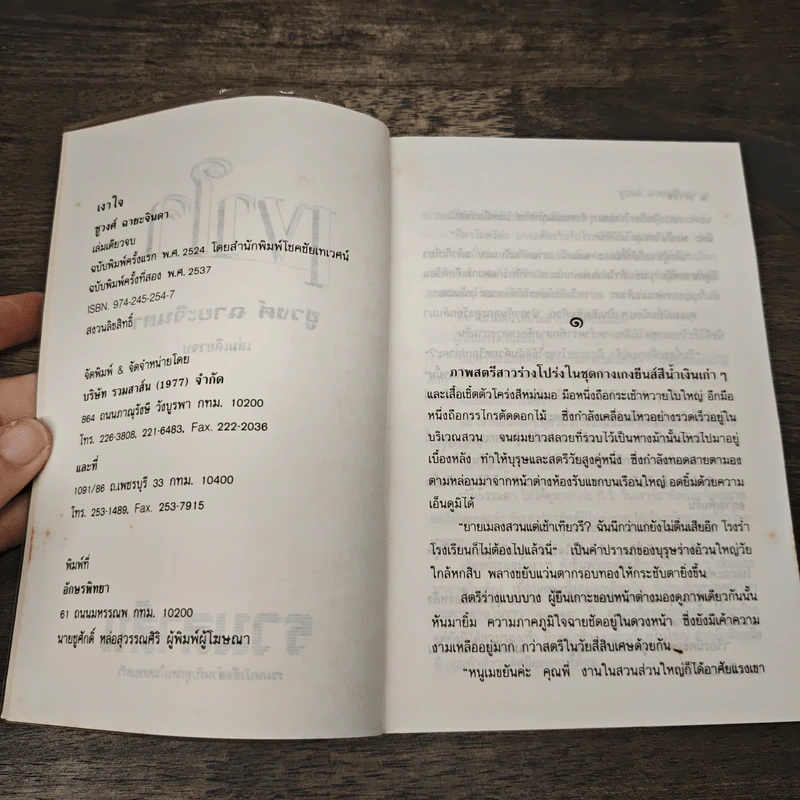 เงาใจ
ชูวงศ์ ฉายะจินดา
เล่มเดียวจบ
ฉบับพิมพ์ครั้งแรก พ.ศ. 2524 โดยสำนักพิมพ์โชคชัยเทเวศน์
ฉบับพิมพ์ครั้งที่สอง พ.ศ. 2537
ISBN. 974-245-254-7
สงวนลิขสิทธิ์
จัดพิมพ์ & จัดจำหน่ายโดย
บริษัท รวมสาส์น (1977) จำกัด
864 ถนนภาณุรังษี วังบูรพา กทม. 10200
โทร. 226-3808, 221-6483, Fax. 222-2036
และที่
1091/86 ถ.เพชรบุรี 33 กทม. 10400
โทร. 253-1489, Fax. 253-7915
พิมพ์ที่
อักษรพิทยา
61 ถนนมหรรณพ กทม. 10200
นายชูศักดิ์ หล่อสุวรรณศิริ ผู้พิมพ์ผู้โฆษณา
๑
ภาพสตรีสาวร่างโปร่งในชุดกางเกงยีนส์สีน้ำเงินเก่า ๆ
และเสื้อเชิ้ตตัวโคร่งสีหม่นมอ มือหนึ่งถือกระเช้าหวายใบใหญ่ อีกมือ
หนึ่งถือกรรไกรตัดดอกไม้ ซึ่งกำลังเคลื่อนไหวอย่างรวดเร็วอยู่ใน
บริเวณสวน จนผมยาวสลวยที่รวบไว้เป็นหางม้านั้นไหวไปมาอยู่
เบื้องหลัง ทำให้บุรุษและสตรีวัยสูงคู่หนึ่ง ซึ่งกำลังทอดสายตามอง
ตามหล่อนมาจากหน้าต่างห้องรับแขกบนเรือนใหญ่ อดยิ้มด้วยความ
เอ็นดูมิได้
“ยายเมลงสวนแต่เช้าเทียวรึ? ฉันนึกว่าแกยังไม่ตื่นเสียอีก โรงร่ำ
โรงเรียนก็ไม่ต้องไปแล้วนี่” เป็นคำปรารภของบุรุษร่างอ้วนใหญ่วัย
ใกล้หกสิบ พลางขยับแว่นตากรอบทองให้กระชับตายิ่งขึ้น
สตรีร่างแบบบาง ผู้ยืนเกาะขอบหน้าต่างมองดูภาพเดียวกันนั้น
หันมายิ้ม ความภาคภูมิใจฉายชัดอยู่ในดวงหน้า ซึ่งยังมีเค้าความ
งามเหลืออยู่มาก กว่าสตรีในวัยสี่สิบเศษด้วยกัน
“หนูเมขยันค่ะ คุณพี่ งานในสวนส่วนใหญ่ก็ได้อาศัยแรงเขา